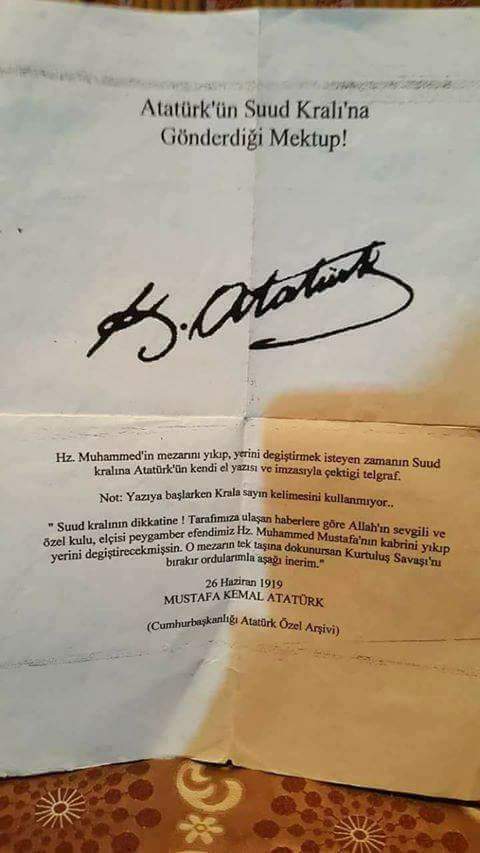 Atatürk'ün Suud Kralı'na
Gönderdiği Mektup!
K. Atatürk
Hz. Muhammed'in mezarını yıkıp, yerini degiştirmek isteyen zamanın Suud
kralına Atatürk'ün kendi el yazısı ve imzasıyla çektigi telgraf.
Not: Yazıya başlarken Krala sayın kelimesini kullanmıyor..
" Suud kralının dikkatine ! Tarafımıza ulaşan haberlere göre Allah'ın sevgili ve
özel kulu, elçisi peygamber efendimiz Hz. Muhammed Mustafa'nın kabrini yıkıp
yerini degiştirecekmişsin. O mezarın tek taşına dokunursan Kurtuluş Savaşı'nı
bırakır ordularımla aşağı inerim."
26 Haziran 1919
MUSTAFA KEMAL ATATÜRK
(Cumhurbaşkanlığı Atatürk Özel Arşivi)